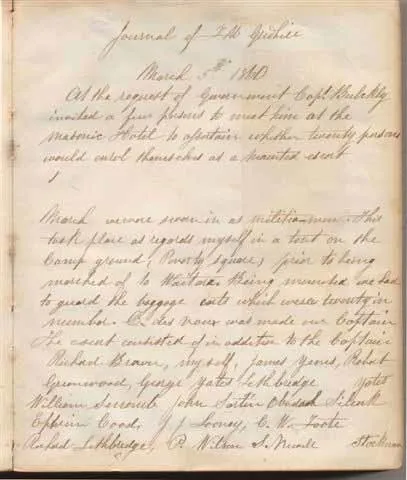 Journal of
March 5th 1860
At the request of Government Capt. Bulckly
invited a few persons to meet him at the
Masonic Hotel to ascertain whether twenty persons
would enrol themselves as a mounted escort
March we were sworn in as militia men. This
took place as regards myself in a tent on the
Camp ground, Poverty square, prior to being
marched of to Waitara. Being mounted we had
to guard the baggage carts which were twenty in
number. C. des Voeux was made our Captain
The escort consisted of in addition to the Captain
Richard Brown, myself, James Yems, Robert
Greenwood, George Yates Lethbridge
William Seccombe John
Edwin Coad, J J Looney, C. W. Foote
Richard Lethbridge, P. Wilson S.